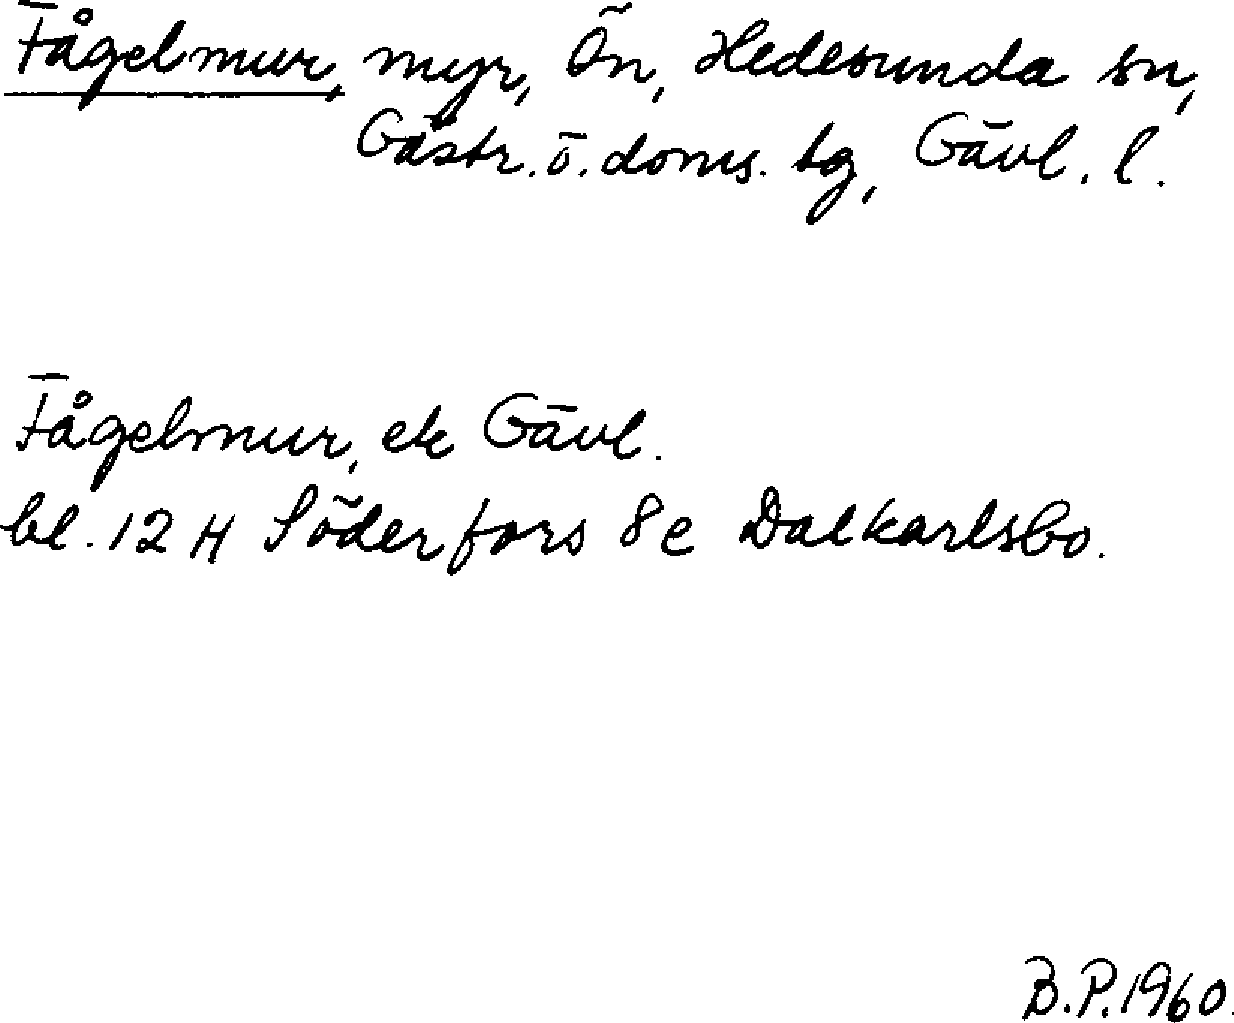 Fågelmur, myr, Ön, Hedesunda sn,
Gästr. ö. doms. tg, Gävl. l.
Fågelmur, ek Gävl.
bl. 12 H Söderfors 8e Dalkarlsbo.
B.P. 1960.